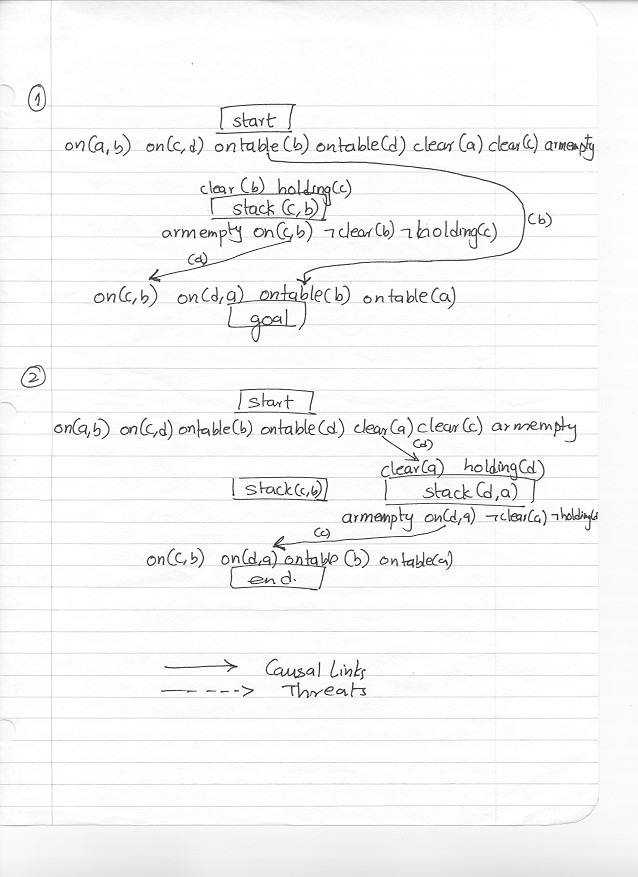 1
start
on(a,b) on(c,d) ontable(b) ontable(d) clear(a) clear(c) armempty
clear(b) holding(c)
stack(c,b)
armempty on(c,b) ¬clear(b) ¬holding(c)
(a)
(b)
on(c,b) on(d,a) ontable(b) ontable(a)
goal
2
start
on(a,b) on(c,d) ontable(b) ontable(d) clear(a) clear(c) armempty
(d)
clear(a) holding(d)
stack(c,b) stack(d,a)
armempty on(d,a) ¬clear(a) ¬holding(
(c)
on(c,b) on(d,a) ontable(b) ontable(a)
end.
Causal Links
Threats